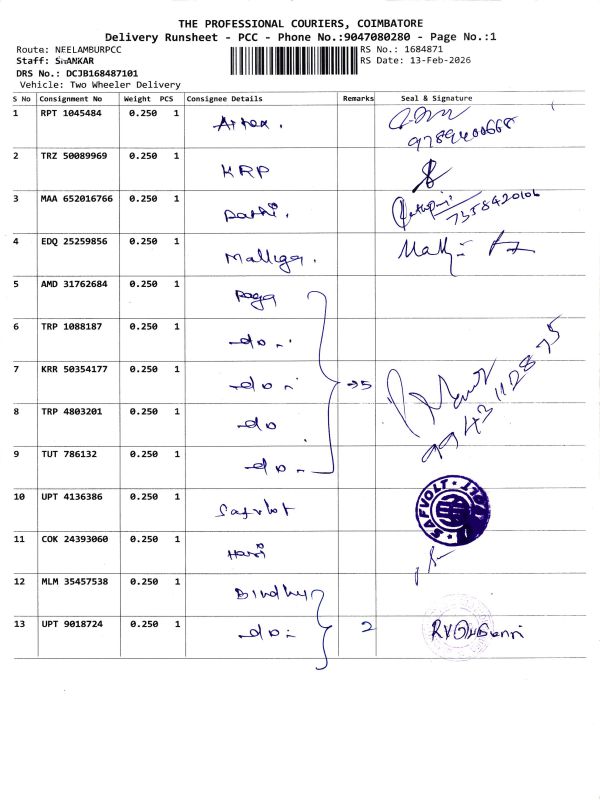 THE PROFESSIONAL COURIERS, COIMBATORE
Delivery Runsheet - PCC - Phone No.:9047080280 - Page No.:1
Route: NEELAMBURPCC RS No.: 1684871
Staff: SHANKAR RS Date: 13-Feb-2026
DRS No.: DCJB168487101
Vehicle: Two Wheeler Delivery
S No Consignment No Weight PCS Consignee Details Remarks Seal & Signature
1 RPT 1045484 0.250 1
9789400668
2 TRZ 50089969 0.250 1 KRP
3 MAA 652016766 0.250 1 7358420106
4 EDQ 25259856 0.250 1 Malliga.
5 AMD 31762684 0.250 1
6 TRP 1088187 0.250 1 -do-
7 KRR 50354177 0.250 1 -do- →5
8 TRP 4803201 0.250 1 -do
9943112875
9 TUT 786132 0.250 1 -do-
10 UPT 4136386 0.250 1 Safvlot
SAFVOLT
11 COK 24393060 0.250 1 Hari
12 MLM 35457538 0.250 1 Bindhu
13 UPT 9018724 0.250 1 -do- 2